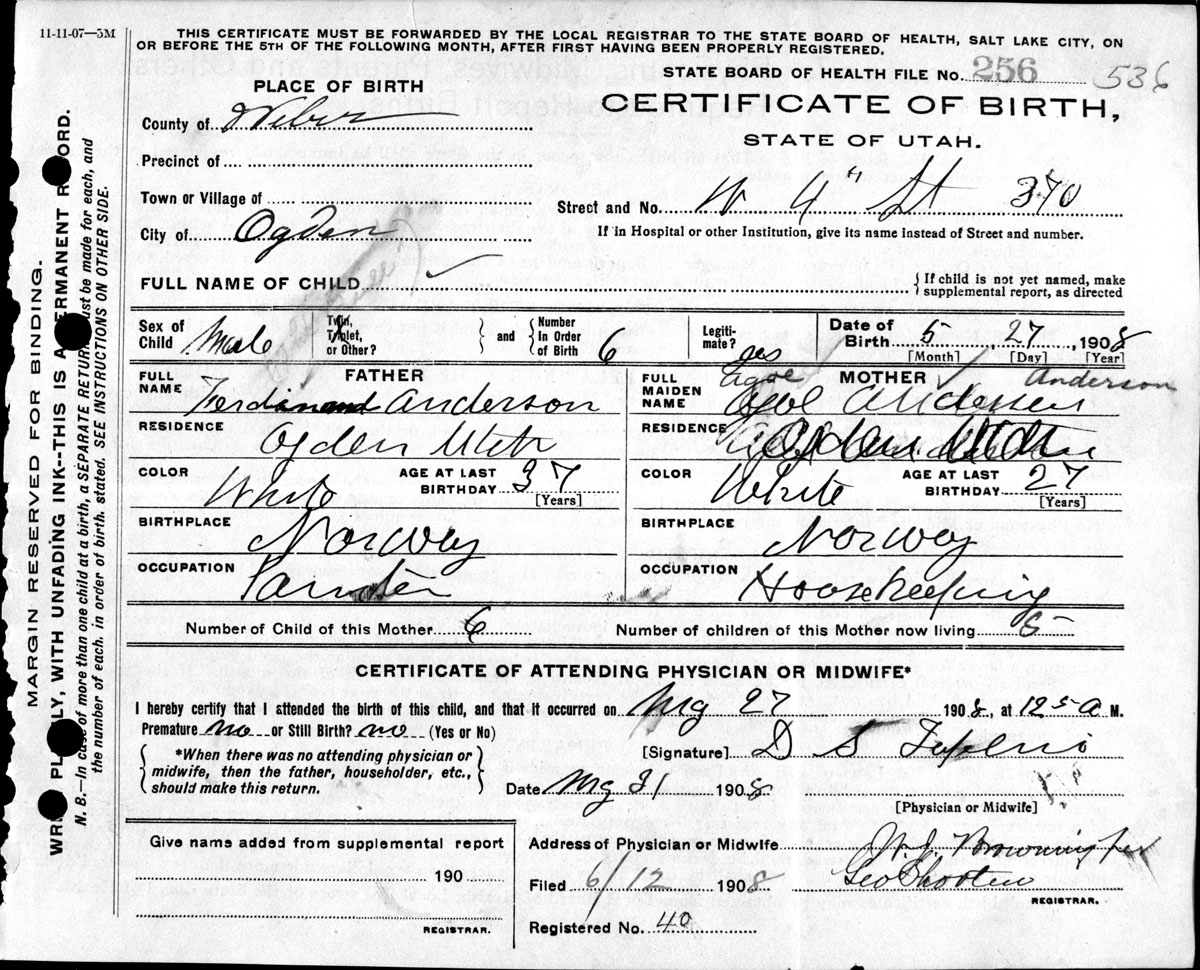 11-11-07—5M
THIS CERTIFICATE MUST BE FORWARDED BY THE LOCAL REGISTRAR TO THE STATE BOARD OF HEALTH, SALT LAKE CITY, ON
OR BEFORE THE 5TH OF THE FOLLOWING MONTH, AFTER FIRST HAVING BEEN PROPERLY REGISTERED.
STATE BOARD OF HEALTH FILE No. 256 536
PLACE OF BIRTH
CERTIFICATE OF BIRTH,
STATE OF UTAH.
County of Weber
Precinct of
Town or Village of
Street and No. W 4th St 370
City of Ogden
If in Hospital or other Institution, give its name instead of Street and number.
FULL NAME OF CHILD
If child is not yet named, make
supplemental report, as directed
Sex of Child Male
Twin, Triplet, or Other?
and Number In Order of Birth 6
Legiti-mate? yes
Date of Birth 5 27, 1908
[Month] [Day] [Year]
FATHER
FULL NAME Ferdinand Anderson
RESIDENCE Ogden Utah
COLOR White AGE AT LAST BIRTHDAY 37 [Years]
BIRTHPLACE Norway
OCCUPATION
MOTHER
FULL MAIDEN NAME Anderson
RESIDENCE Ogden Utah
COLOR White AGE AT LAST BIRTHDAY 27 [Years]
BIRTHPLACE Norway
OCCUPATION Housekeeping
Number of Child of this Mother 6 Number of children of this Mother now living 5
CERTIFICATE OF ATTENDING PHYSICIAN OR MIDWIFE*
I hereby certify that I attended the birth of this child, and that it occurred on My 27 1908, at 12 5 A M.
Premature no or Still Birth? no (Yes or No)
*When there was no attending physician or
midwife, then the father, householder, etc.,
should make this return.
[Signature] D S
Date My 31 1908
[Physician or Midwife]
Give name added from supplemental report
190
REGISTRAR.
Address of Physician or Midwife
Browning
Filed 6/12 1908 Geo Shorten
REGISTRAR.
Registered No. 40
MARGIN RESERVED FOR BINDING.
PLAINLY, WITH UNFADING INK--THIS IS A PERMANENT RECORD.
N. B.—In case of more than one child at a birth, a SEPARATE RETURN must be made for each, and
the number of each. in order of birth. stated. SEE INSTRUCTIONS ON OTHER SIDE.